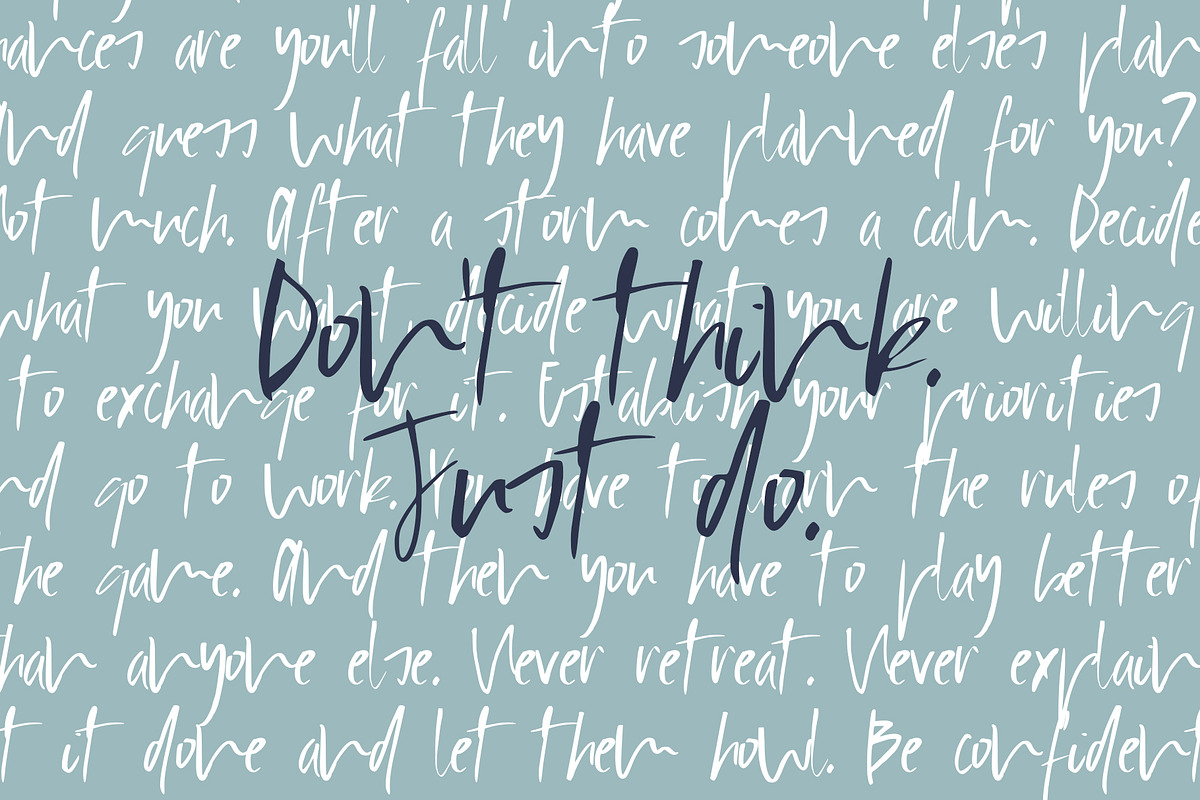 hances are you'll fall into someone else's plan
And guess what they have planned for you?
Not much. After a storm comes a calm. Decide
what you want, decide what you are willing
to exchange for it. Establish your priorities
nd go to work. You have to learn the rules of
the game. And then you have to play better
than anyone else. Never retreat. Never explain
t it done and let them howl. Be confident
Don't think.
Just do.